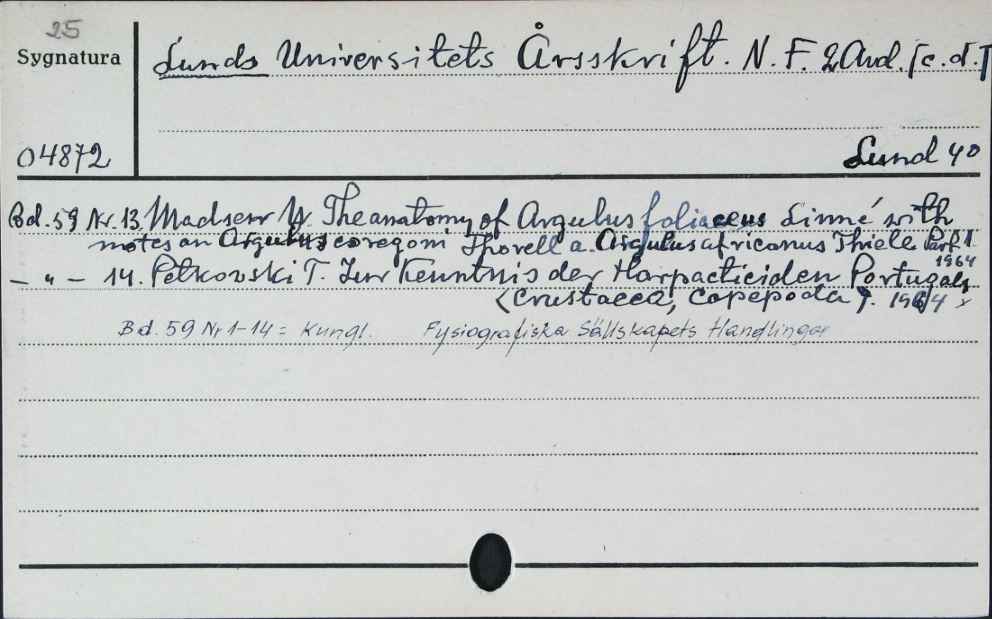 25
Sygnatura
Lunds Universitets Årsskrift. N. F. 2 Avd. [c. d.]
04872
Lund 4°
Bd. 59 Nr. 13. Madsen N. The anatomy of Argulus foliaceus Linné with
notes on Argulus coregoni Thorell a. Argulus africanus Thiele Part 1
1964
– " – 14. Petkovski T. Zur Kenntnis der Harpacticiden Portugals
(Crustacea, Copepoda). 1964
Bd. 59 Nr 1-14 = Kungl. Fysiografiska Sällskapets Handlingar